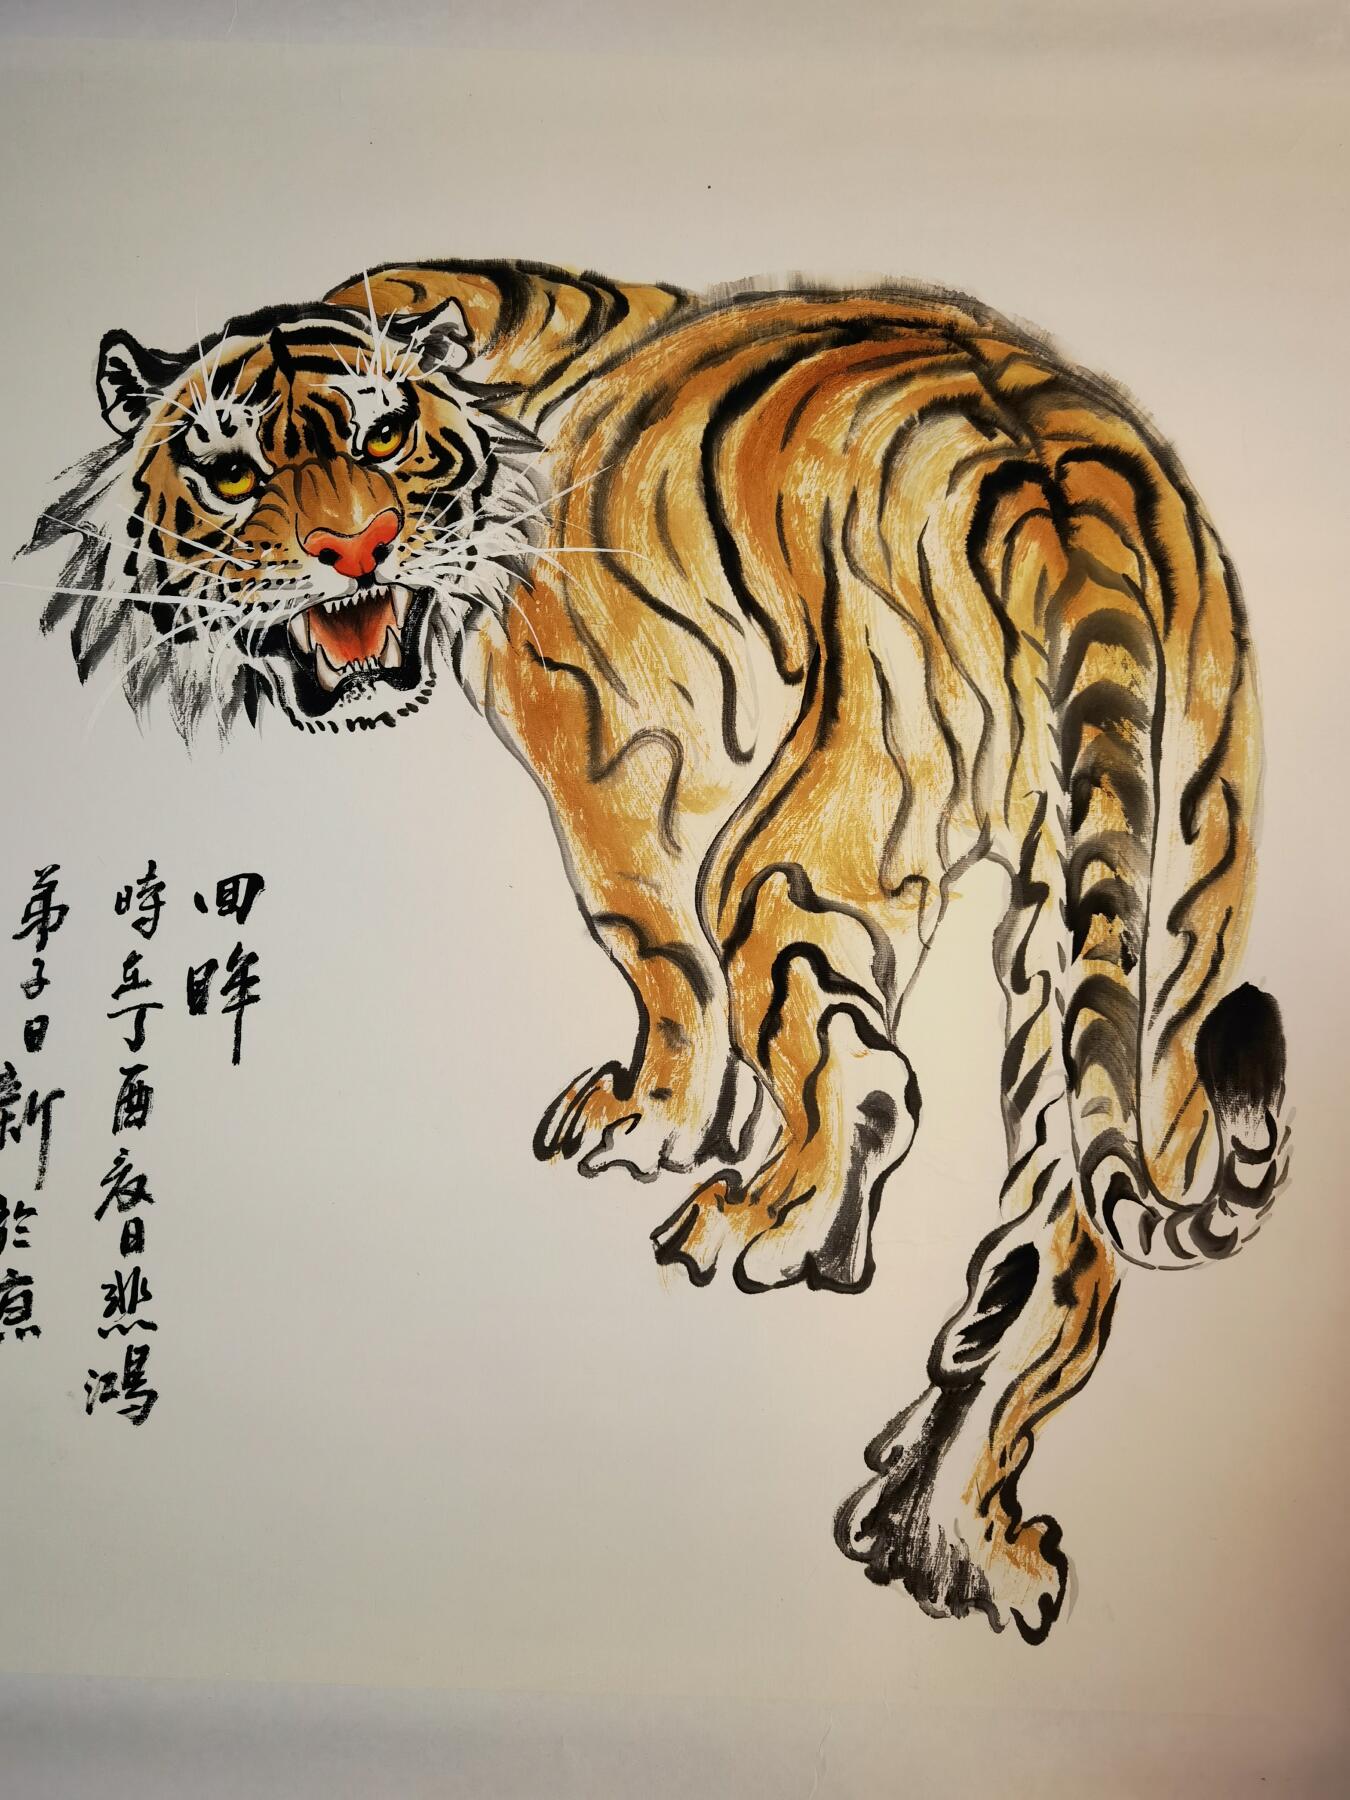 回眸
時在丁酉夜日悲鴻
弟子日新於京